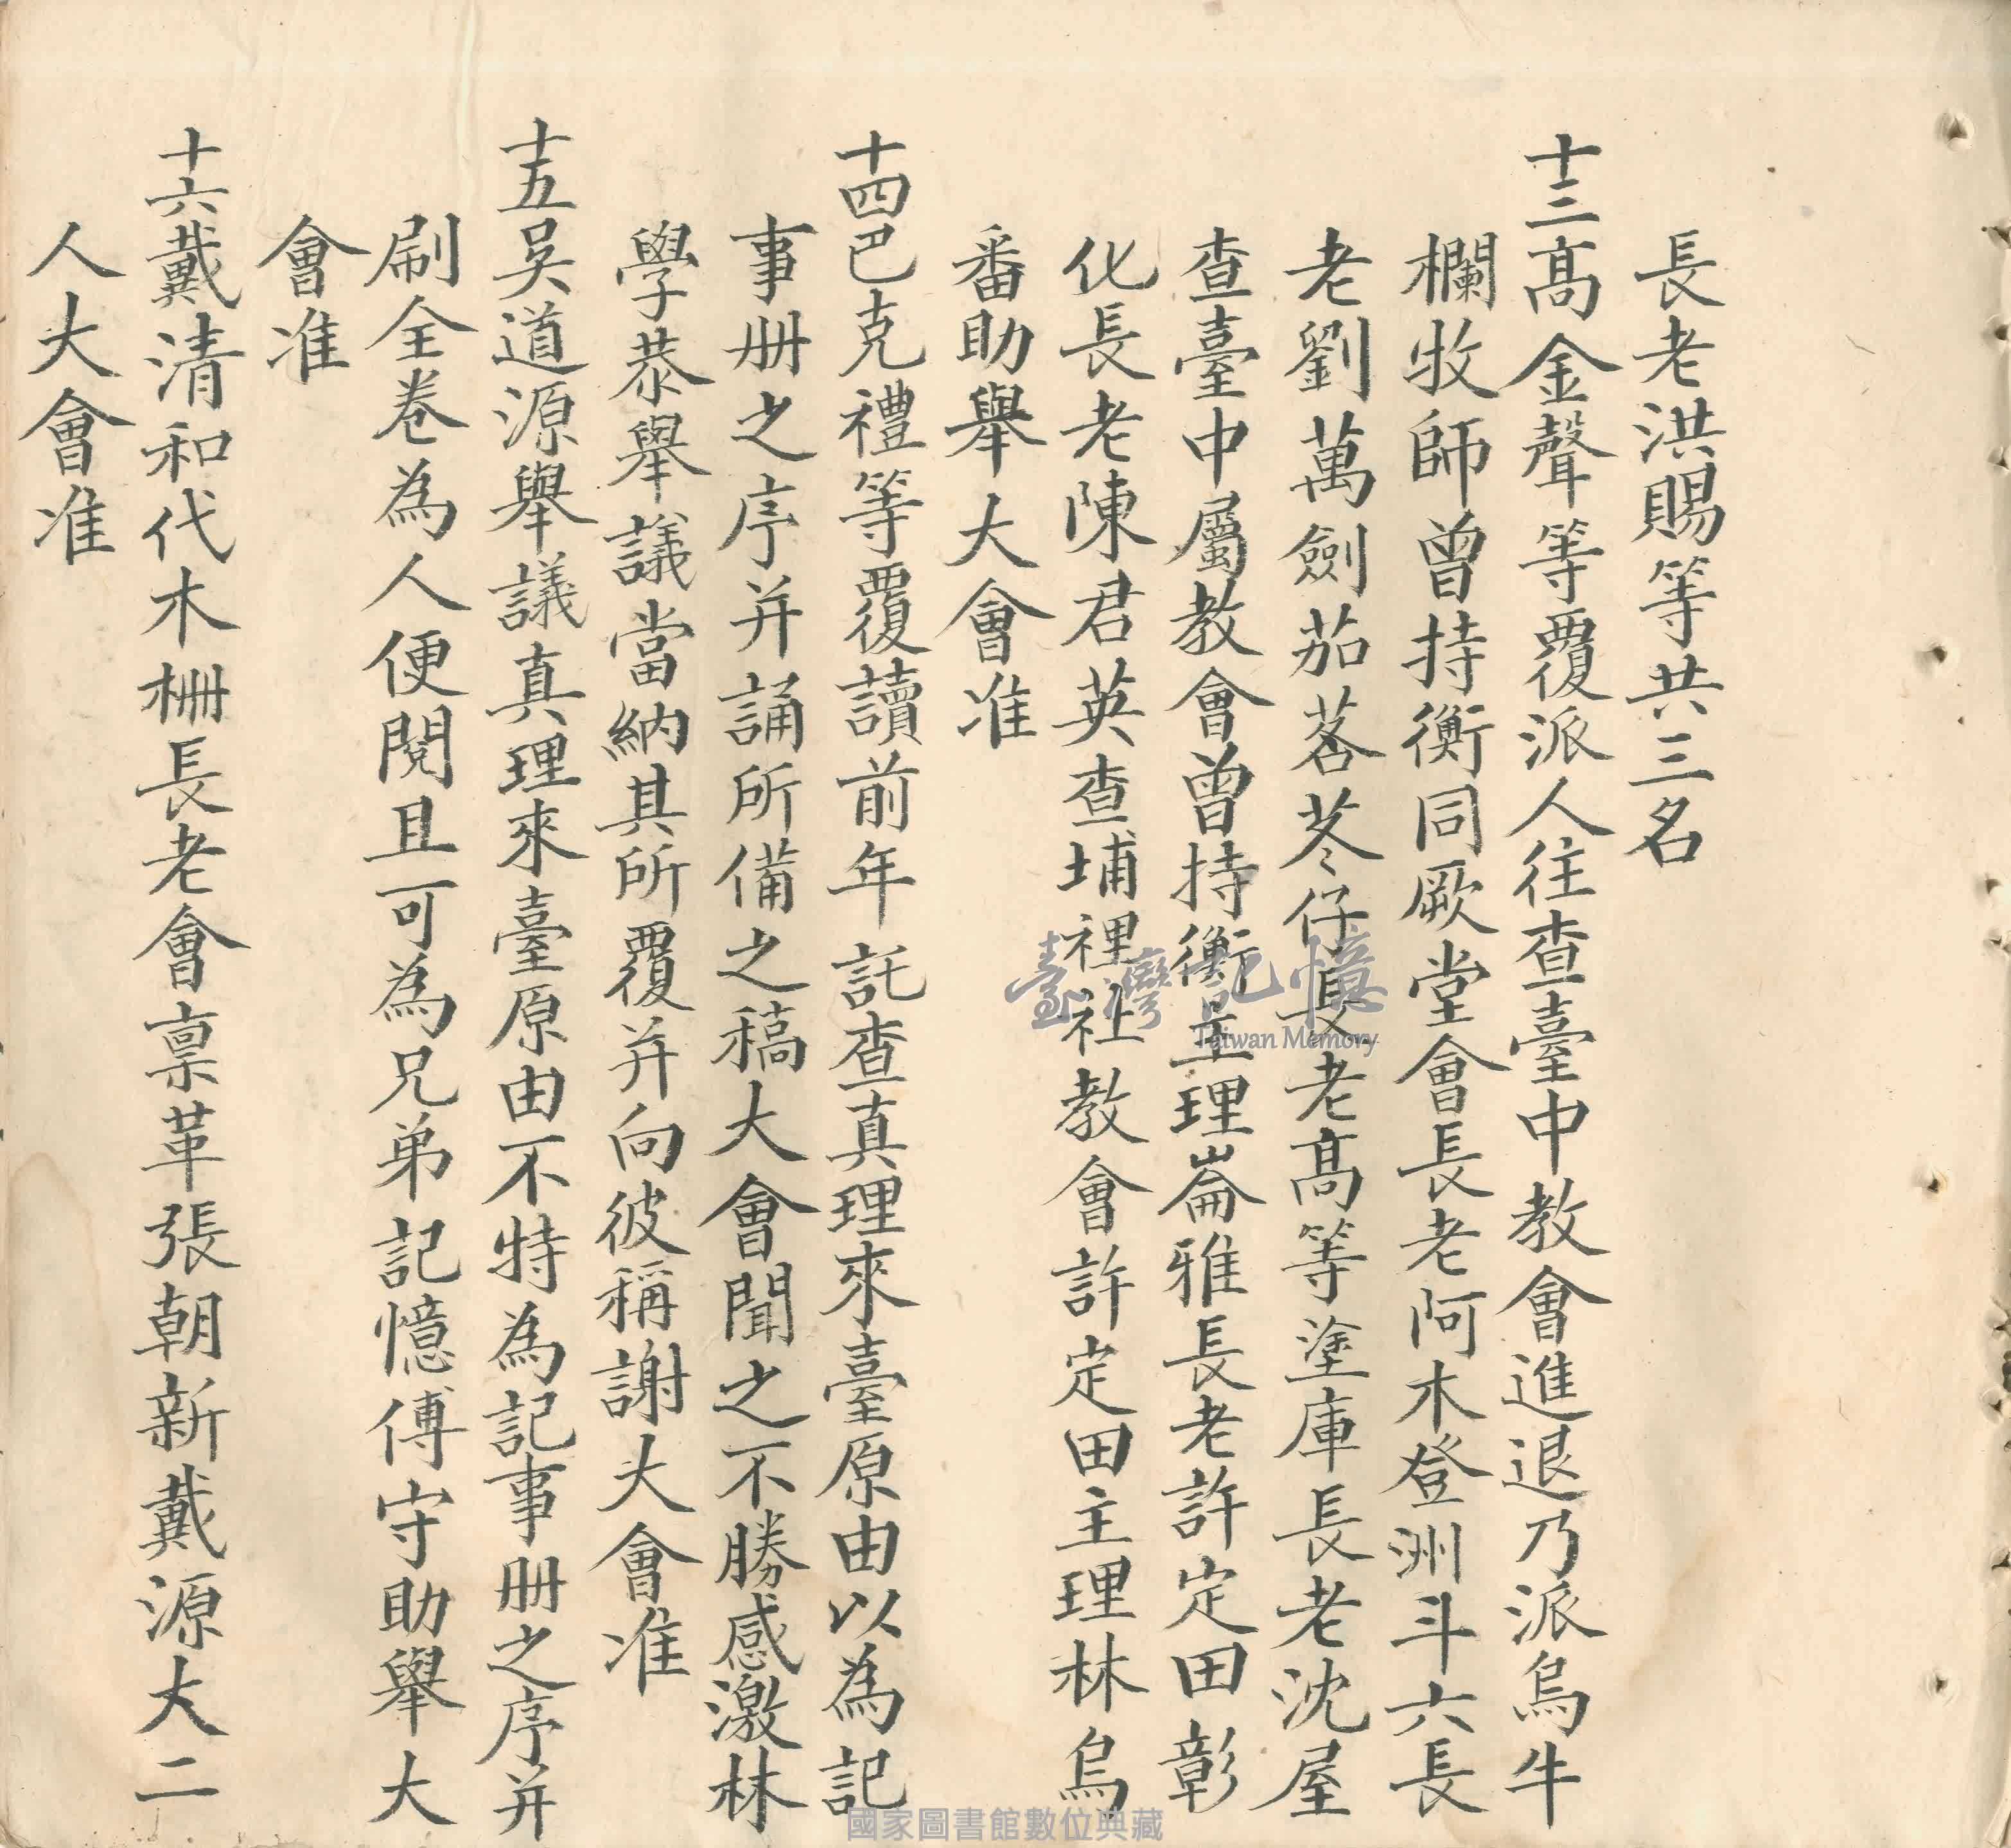 長老洪賜等共三名
十三高金聲等覆派人往查臺中教會進退乃派烏牛
欄牧師曾持衡同厥堂會長老阿木登洲斗六長
老劉萬劍茄苳仔長老高等塗庫長老沈屋
查臺中屬教會曾持衡主理崙雅長老許定田彰
化長老陳君英查埔裡社教會許定田主理林烏
番助舉大會准
十四巴克禮等覆讀前年託查真理來臺原由以為記
事册之序并誦所備之稿大會聞之不勝感激林
學恭舉議當納其所覆并向彼稱謝大會准
十五吳道源舉議真理來臺原由不特為記事册之序并
刷全卷為人便閱且可為兄弟記憶傅守助舉大
會准
十六戴清和代木柵長老會禀革張朝新戴源大二
人大會准
臺灣記憶
Taiwan Memory
國家圖書館數位典藏